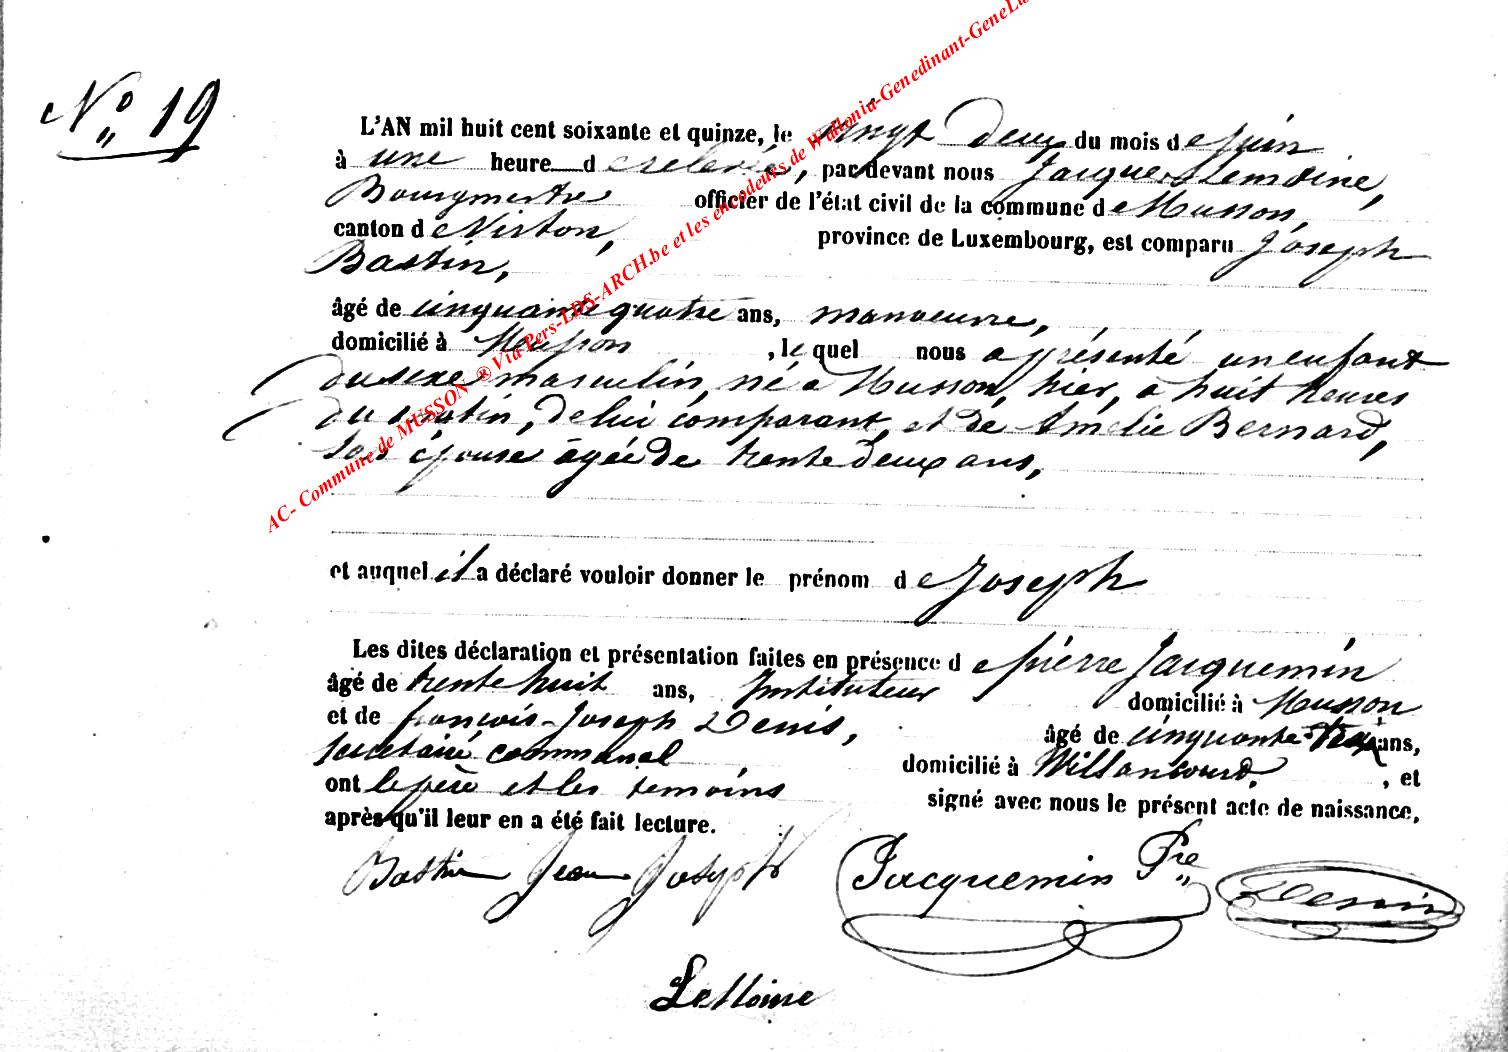 N° 19
L'AN mil huit cent soixante et quinze, le vingt deux du mois de juin
à une heure de relevée, par devant nous Jacques Lemoine,
Bourgmestre officier de l'état civil de la commune de Musson,
canton de Virton, province de Luxembourg, est comparu Joseph
Bastin,
âgé de cinquante quatre ans, manoeuvre,
domicilié à Musson, lequel nous a présenté un enfant
du sexe masculin, né à Musson, hier, à huit heures
du matin, de lui comparant, et de Amélie Bernard,
son épouse âgée de trente deux ans,
et auquel il a déclaré vouloir donner le prénom de Joseph
Les dites déclaration et présentation faites en présence de pierre Jacquemin
âgé de trente huit ans, Instituteur domicilié à Musson
et de françois-Joseph Denis, âgé de cinquante trois ans,
secretaire communal domicilié à Willancourt, et
ont le père et les temoins signé avec nous le présent acte de naissance,
après qu'il leur en a été fait lecture.
Bastin Jean Joseph Jacquemin Pre
LeMoine
AC- Commune de MUSSON ® Via Pers-LDS-ARCH.be et les encodeurs de Wallonia-Genedinant-GeneLu